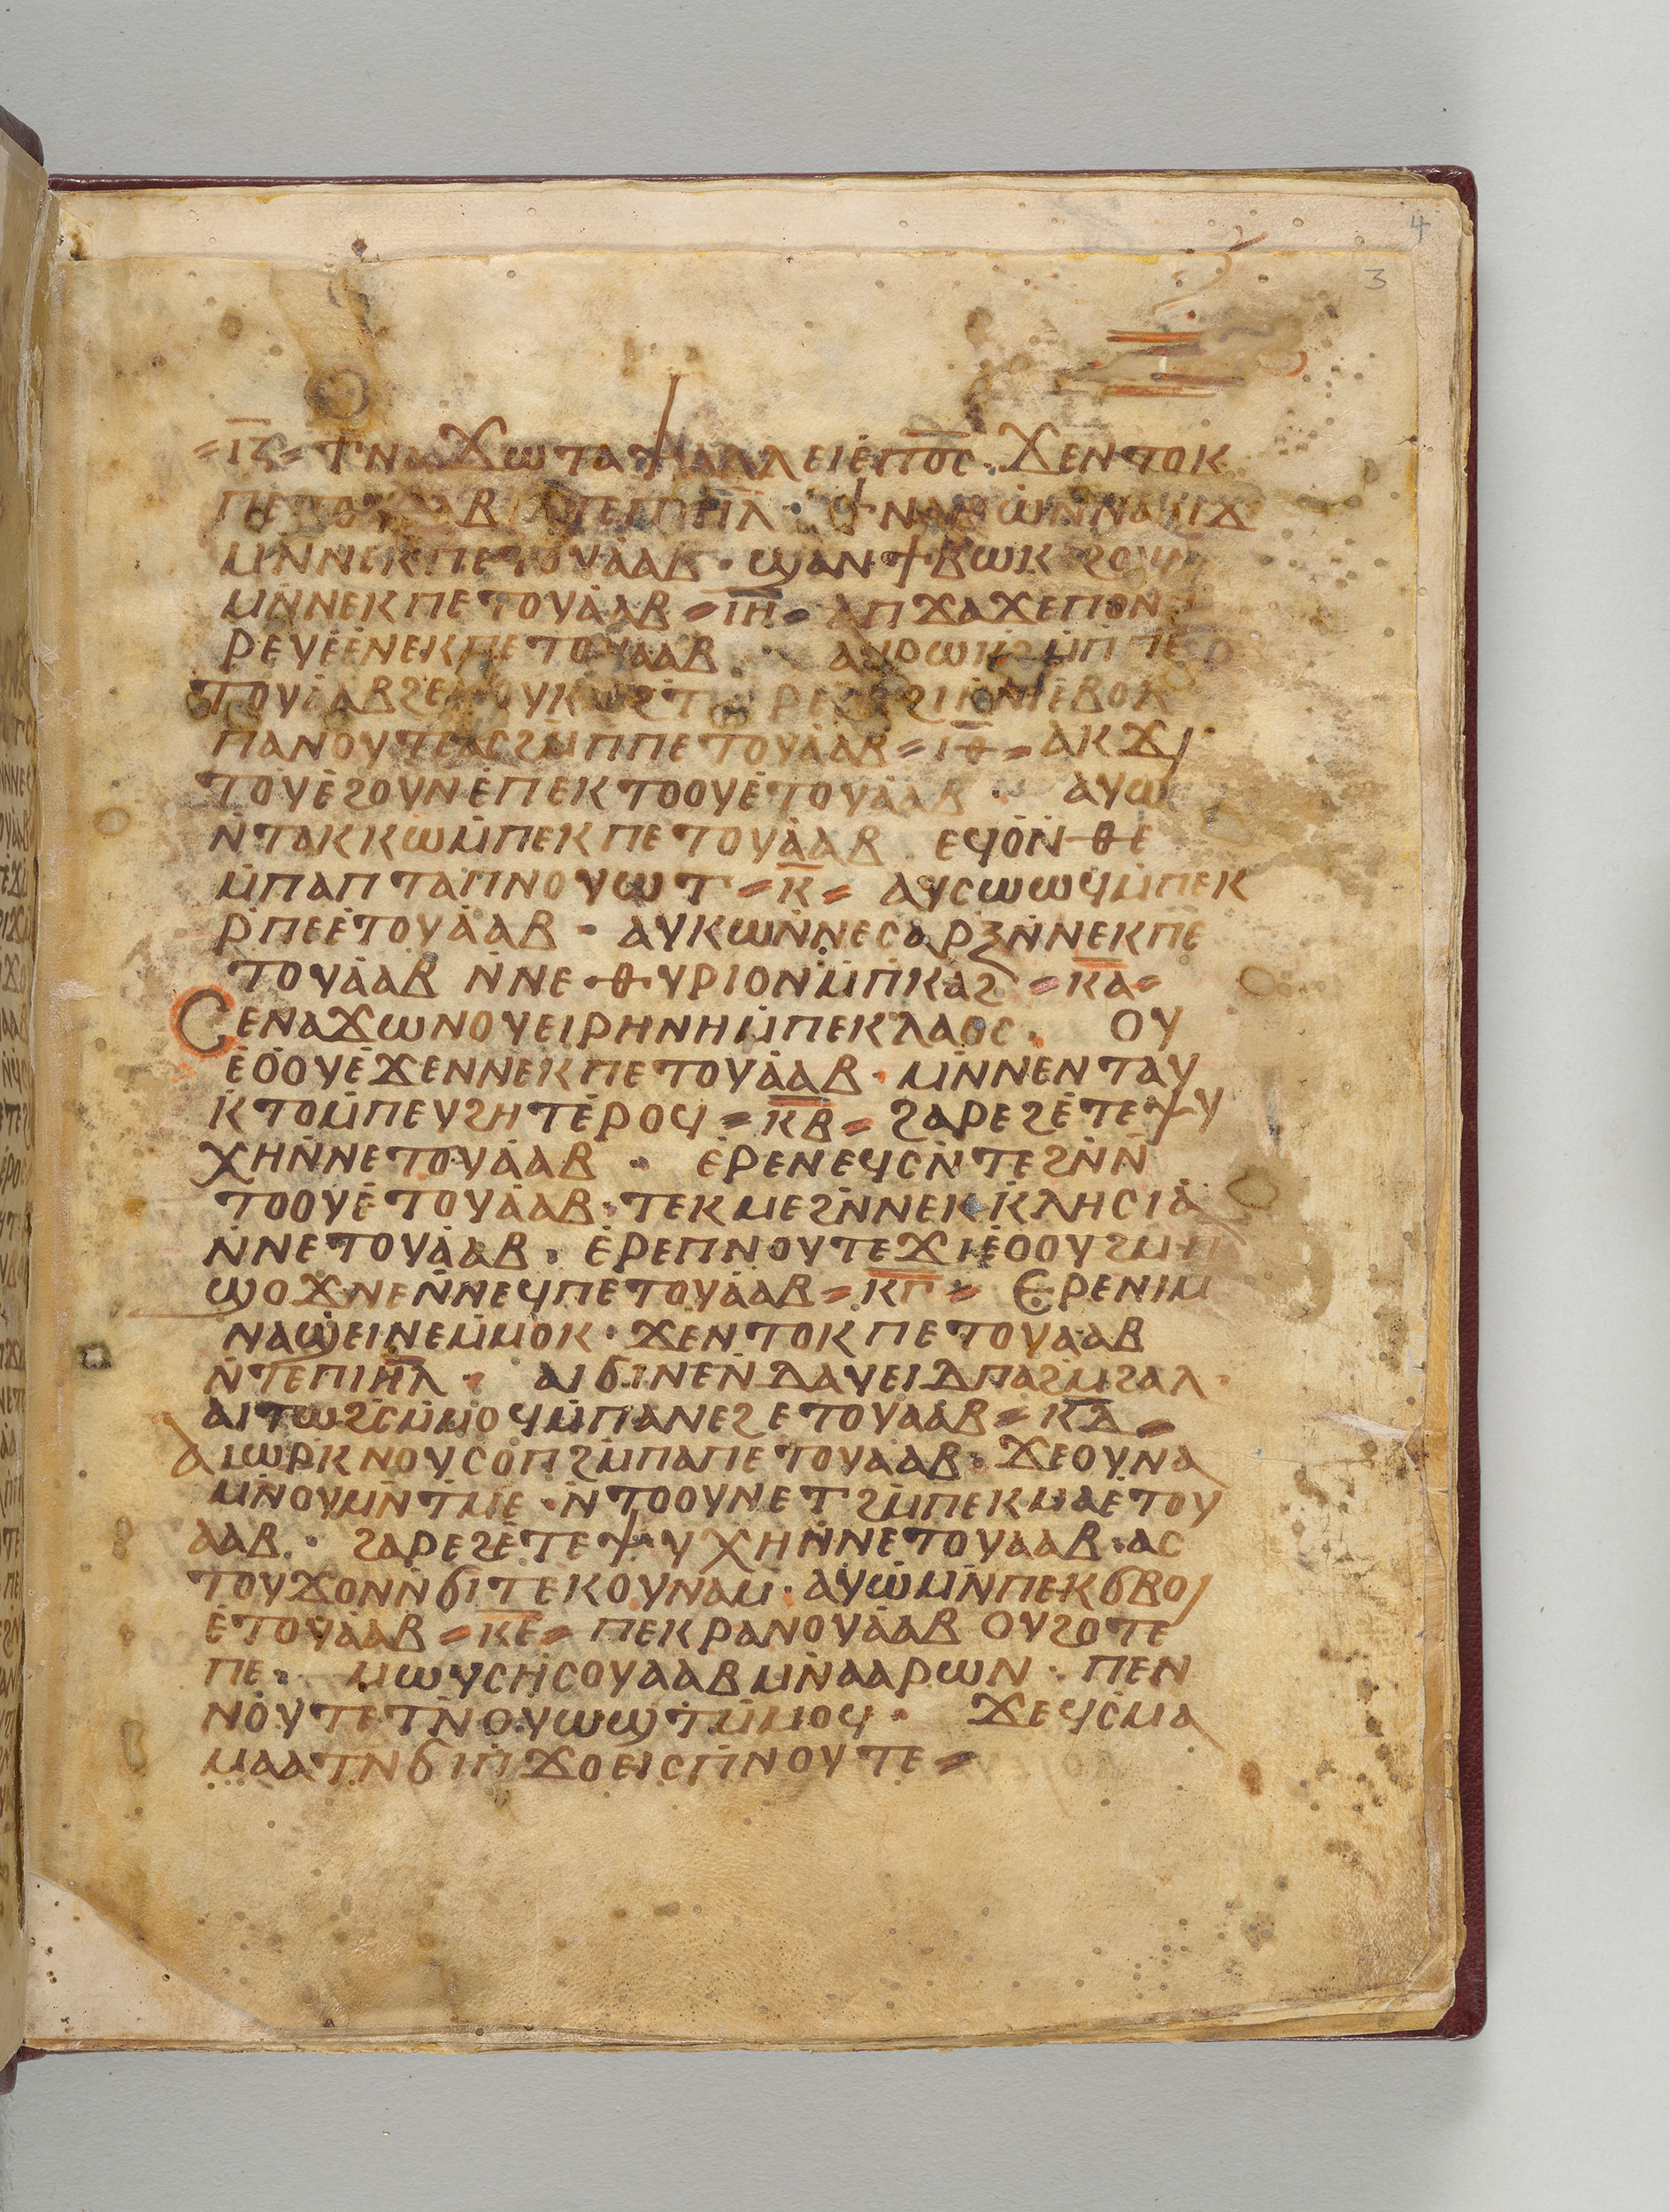 4
3
=ⲓ̅ⲍ̅= ϯⲛⲁϫⲱ ⲧⲁⲯⲁⲗⲗⲉⲓ ⲉ̇ⲡⲟ̅ⲥ̅· ϫⲉⲛⲧⲟⲕ
ⲡⲉⲧⲟⲩⲁⲁⲃ
ⲙ̇ⲛ̇ⲛⲉⲕⲡⲉⲧⲟⲩⲁ̇ⲁⲃ· ϣⲁⲛϯⲃⲱⲕ ϩⲟⲩⲛ
ⲙ̇ⲛ̇ⲛⲉⲕⲡⲉⲧⲟⲩⲁ̇ⲁⲃ =ⲓ̅ⲏ̅= ⲁⲡϫⲁϫⲉⲡⲟⲛⲏ
ⲣⲉⲩⲉ̇ⲉ̇ⲛⲉⲕⲡⲉⲧⲟⲩⲁⲁⲃ·
ⲧⲟⲩⲁ̇ⲁⲃ
ⲡⲁⲛⲟⲩⲧⲉⲁⲥϩⲙ̇ⲡⲡⲉⲧⲟⲩⲁ̇ⲁⲃ =ⲓ̅ⲑ̅= ⲁⲕϫⲓ
ⲧⲟⲩⲉ̇ϩⲟⲩⲛⲉ̇ⲡⲉⲕⲧⲟⲟⲩⲉ̇ⲧⲟⲩⲁ̇ⲁⲃ · ⲁⲩⲱ
ⲛ̇ⲧⲁⲕⲕⲱⲙ̇ⲡⲉⲕⲡⲉⲧⲟⲩⲁ̇ⲁⲃ ⲉϥⲟ̇ⲛ̇ⲑⲉ
ⲙ̇ⲡⲁⲡⲧⲁⲡⲛⲟⲩⲱⲧ =ⲕ̅= ⲁⲩⲥⲱⲱϥⲙ̇ⲡⲉⲕ
ⲣ̇ⲡⲉⲉ̇ⲧⲟⲩⲁ̇ⲁⲃ · ⲁⲩⲕⲱⲛ̇ⲛⲉⲥⲁⲣⲝⲛ̇ⲛⲉⲕⲡⲉ
ⲧⲟⲩⲁ̇ⲁⲃ ⲛ̇ⲛⲉⲑⲩⲣⲓⲟⲛⲙ̇ⲡ̇ⲕⲁϩ =ⲕ̅ⲁ̅=
ⲥⲉⲛⲁϫⲱⲛⲟⲩⲉⲓⲣⲏⲛⲏⲙ̇ⲡⲉⲕⲗⲁⲟⲥ· ⲟⲩ
ⲉ̇ⲟ̇ⲟⲩⲉ̇ϫⲉⲛⲛⲉⲕⲡⲉⲧⲟⲩⲁ̇ⲁⲃ· ⲙ̇ⲛ̇ⲛⲉⲛⲧⲁⲩ
ⲕ̇ⲧⲟⲙ̇ⲡⲉⲩϩⲏⲧⲉ̇ⲣⲟϥ =ⲕ̅ⲃ̅= ϩⲁⲣⲉϩⲉ̇ⲧⲉⲯⲩ
ⲭⲏⲛ̇ⲛⲉⲧⲟⲩⲁ̇ⲁⲃ · ⲉ̇ⲣⲉⲛⲉϥⲥⲛ̇ⲧⲉϩⲛ̇ⲛ̇
ⲧⲟⲟⲩⲉ̇ⲧⲟⲩⲁ̇ⲁⲃ· ⲧⲉⲕⲙⲉϩⲛ̇ⲛⲉⲕⲕ̇ⲗⲏⲥⲓⲁ̇
ⲛ̇ⲛⲉⲧⲟⲩⲁ̇ⲁⲃ · ⲉ̇ⲣⲉⲡⲛⲟⲩⲧⲉϫⲓⲉ̇ⲟⲟⲩϩⲙ̇ⲡ
ϣⲟϫⲛⲉⲛ̇ⲛⲉϥⲡⲉⲧⲟⲩⲁ̇ⲁⲃ =ⲕ̅ⲅ̅= ⲉⲣⲉⲛⲓⲙ
ⲛⲁϣ̇ⲉⲓⲛⲉⲙ̇ⲙⲟⲕ· ϫⲉⲛⲧⲟⲕⲡⲉⲧⲟⲩⲁⲁⲃ
ⲛ̇ⲧⲉⲡⲓⲏ̅ⲗ̅ · ⲁⲓϭⲓⲛⲉⲛ̇ⲇⲁⲩⲉⲓⲇⲡⲁϩⲙ̇ϩⲁⲗ·
ⲁⲓⲧⲱϩⲥ̇ⲙ̇ⲙⲟϥⲙ̇ⲡⲁⲛⲉϩⲉⲧⲟⲩⲁⲁⲃ =ⲕ̅ⲇ̅=
ⲁⲓⲱⲣⲕⲛⲟⲩⲥⲟⲡϩⲙ̇ⲡⲁⲡⲉⲧⲟⲩⲁⲁⲃ· ϫⲉⲟⲩⲛⲁ
ⲙ̇ⲛ̇ⲟⲩⲙⲛ̇ⲧⲙⲉ· ⲛ̇ⲧⲟⲟⲩⲛⲉⲧϩⲙ̇ⲡⲉⲕⲙⲁⲉ̇ⲧⲟⲩ
ⲁⲁⲃ · ϩⲁⲣⲉϩⲉ̇ⲧⲉⲯⲩⲭⲏⲛ̇ⲛⲉⲧⲟⲩⲁⲁⲃ· ⲁⲥ
ⲧⲟⲩϫⲟⲛⲛ̇ϭⲓⲧⲉⲕⲟⲩⲛⲁⲙ· ⲁⲩⲱ̇ⲙ̇ⲛ̇ⲡⲉⲕϭⲃⲟⲓ
ⲉ̇ⲧⲟⲩⲁ̇ⲁⲃ =ⲕ̅ⲉ̅= ⲡⲉⲕⲣⲁⲛⲟⲩⲁ̇ⲁⲃ ⲟⲩϩⲟⲧⲉ
ⲡⲉ· ⲙⲱⲩⲥⲏ̇ⲥⲟⲩⲁⲁⲃⲙⲛ̇ⲁⲁⲣⲱⲛ · ⲡⲉⲛ
ⲛⲟ̇ⲩⲧⲉⲧⲛ̇ⲟⲩⲱϣⲧ̇ⲙ̇ⲙⲟϥ· ϫⲉϥⲥ̇ⲙⲁ
ⲙⲁⲁⲧⲛ̇ϭⲓⲡ̇ϫⲟⲉⲓⲥⲡ̇ⲛⲟⲩⲧⲉ=